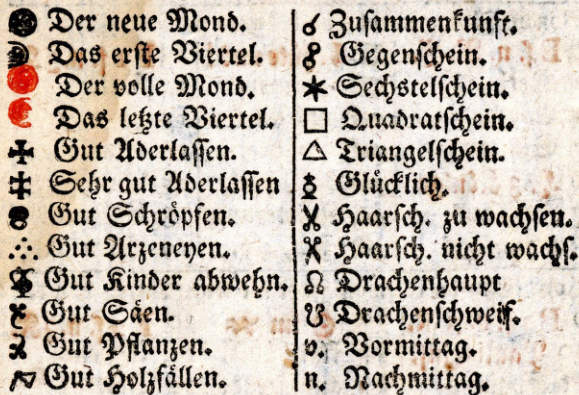 Der neue Mond.
Das erste Viertel.
Der volle Mond.
Das letzte Viertel.
Gut Aderlassen.
Sehr gut Aderlassen
Gut Schröpfen.
Gut Arzeneyen.
Gut Kinder abwehn.
Gut Säen.
Gut Pflanzen.
Gut Holzfällen.
Zusammenkunft.
Gegenschein.
Sechstelschein.
Quadratschein.
Triangelschein.
Glücklich.
Haarsch. zu wachsen.
Haarsch. nicht wachs.
Drachenhaupt
Drachenschweif.
v. Vormittag.
n. Nachmittag.